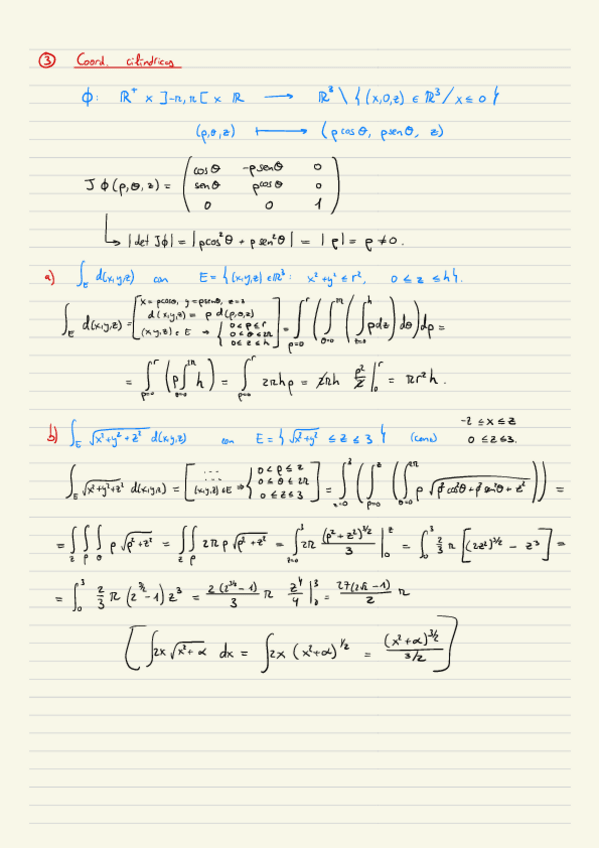 ③ Coord. cilíndricas
ϕ: ℝ⁺ × ]-π,π[ × ℝ ⟶ ℝ³ \ { (x,0,z) ∈ ℝ³ / x ≤ 0 }
(ρ,θ,z) ⟼ (ρ cosθ, ρ senθ, z)
Jϕ(ρ,θ,z) = ( cosθ -ρ senθ 0
senθ ρcosθ 0
0 0 1 )
↳ |det Jϕ| = |ρcos²θ + ρ sen²θ| = |ρ| = ρ ≠ 0.
a) ∫_E d(x,y,z) con E = { (x,y,z) ∈ ℝ³: x²+y² ≤ r², 0 ≤ z ≤ h }.
∫_E d(x,y,z) = [ x = ρcosθ, y = ρsenθ, z = z
d(x,y,z) = ρ d(ρ,θ,z)
(x,y,z) ∈ E ⇒ { 0 < ρ ≤ r
0 ≤ θ ≤ 2π
0 ≤ z ≤ h ] = ∫_{ρ=0}^{r} ( ∫_{θ=0}^{2π} ( ∫_{z=0}^{h} ρdz ) dθ ) dρ =
= ∫_{ρ=0}^{r} ( ρ ∫_{θ=0}^{2π} h ) = ∫_{ρ=0}^{r} 2πhρ = 2πh ρ²/2 |_0^r = πr²h.
b) ∫_E √(x²+y²+z²) d(x,y,z) con E = { √(x²+y²) ≤ z ≤ 3 } (cono) -z ≤ x ≤ z
0 ≤ z ≤ 3.
∫_E √(x²+y²+z²) d(x,y,z) = [ ....
(x,y,z) ∈ E ⇒ { 0 < ρ ≤ z
0 ≤ θ ≤ 2π
0 ≤ z ≤ 3 ] = ∫_{z=0}^{3} ( ∫_{ρ=0}^{z} ( ∫_{θ=0}^{2π} ρ √(ρ²cos²θ + ρ²sen²θ + z²) ) ) =
= ∫_z ∫_ρ ∫_θ ρ √(ρ²+z²) = ∫_z ∫_ρ 2πρ √(ρ²+z²) = ∫_{z=0}^{3} 2π (ρ²+z²)^{3/2}/3 |_0^z = ∫_0^3 2/3 π [ (2z²)^{3/2} - z³ ] =
= ∫_0^3 2/3 π (2^{3/2} -1) z³ = 2(2^{3/2} -1)/3 π z⁴/4 |_0^3 = 27(2√2 -1)/2 π
[ ∫2x √(x²+α) dx = ∫2x (x²+α)^{1/2} = (x²+α)^{3/2}/(3/2) ]